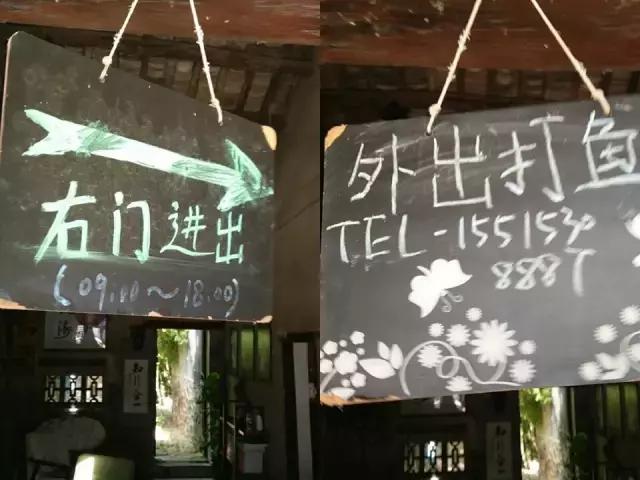 右门进出
(09.00~18.00)
外出打鱼
TEL-1551530
888T